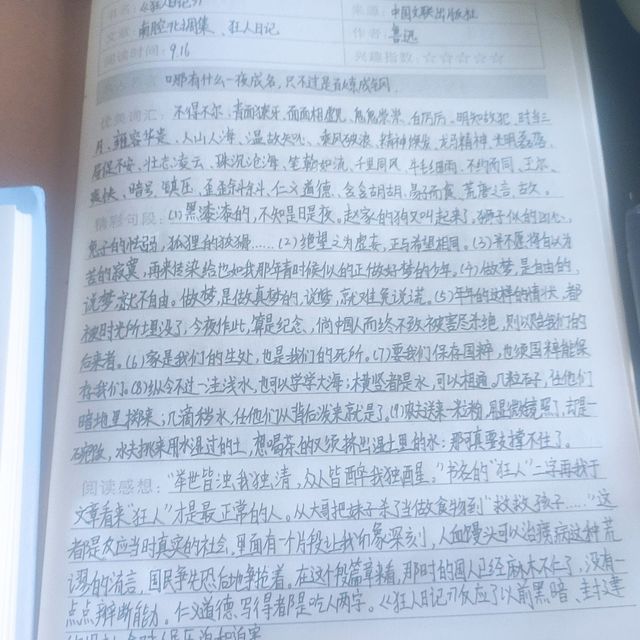 书名:《狂人日记》 来源:中国文联出版社
文章:南腔北调集、狂人日记 作者:鲁迅
阅读时间:9.16 兴趣指数:☆☆☆☆☆
哪有什么一夜成名,只不过是百炼成钢。
优美词汇:不得不尔、青面獠牙、面面相觑、鬼鬼祟祟、白厉厉、明知故犯、时当三
月、雍容华贵、人山人海、温故知心、乘风破浪、精神焕发、龙马精神、光明磊落、
局促不安、壮志凌云、珠沉沧海、笔翰如流、千里同风、牛毛细雨、不约而同、王尔、
爽快、暗号、镇压、歪歪斜斜、仁义道德、含含胡胡、易子而食、荒唐之言、故友。
精彩句段:(1)黑漆漆的,不知是日是夜。赵家的狗又叫起来了,狮子似的凶心,
兔子的怯弱,狐狸的狡猾……(2)绝望之为虚妄,正与希望相同。(3)并不愿将自以为
苦的寂寞,再来传染给也如我那年青时候似的正做好梦的少年。(4)做梦,是自由的,
说梦就不自由。做梦,是做真梦的,说梦,就难免说谎。(5)年年的这样的情状,都
被时光所埋没了,今夜作此,算是纪念、倘中国人而终不致被害尽杀绝,则以贻我们的
后来者。(6)家是我们的生处,也是我们的死所。(7)要我们保存国粹,也须国粹能保
存我们。(8)纵令不过一洼浅水,也可以学学大海;横竖都是水,可以相通。几粒石子,任他们
暗地里掷来;几滴秽水,任他们从背后泼来就是了。(9)农夫送来一粒粉,用显微镜照了,却是一
石砲,水夫挑来用水湿过的土,想喝茶的又须挤出湿土里的水:那可真要支撑不住了。
阅读感想:"举世皆浊我独清,众人皆醉我独醒。"书名的"狂人"二字再我于
文章看来"狂人"才是最正常的人。从大哥把妹子杀了当做食物到"救救孩子……"这
都是反应当时真实的社会,里面有一个片段让我印象深刻,人血馒头可以治痨病这种荒
谬的流言,国民争先恐后地争抢着。在这个段篇章看,那时的国人已经麻木不仁了,没有一
点点辨断能力。仁义道德、写得都是吃人两字。《狂人日记》反应了以前黑暗、封建